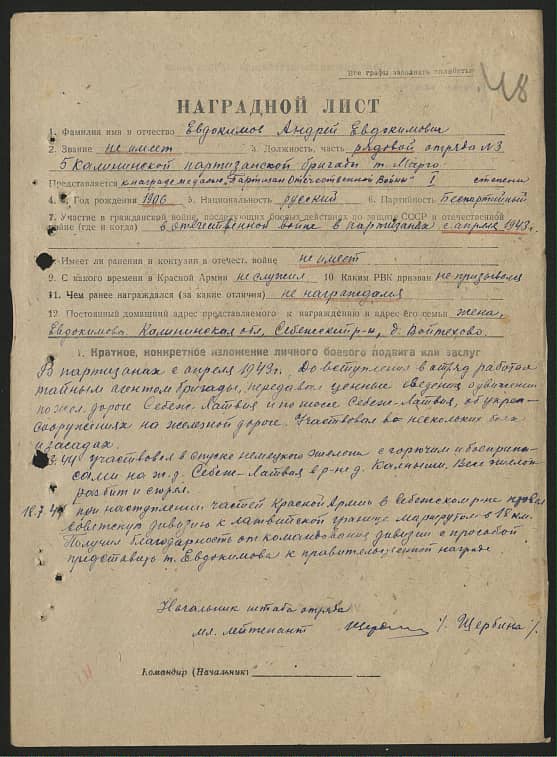 Все графы заполнять полностью
48
НАГРАДНОЙ ЛИСТ
1. Фамилия имя и отчество Евдокимов Андрей Евдокимович
2. Звание не имеет 3. Должность, часть рядовой отряда №3
5 Калининской партизанской бригады т. Марго.
Представляется к награде медалью „Партизан Отечественной Войны" I степени
4. Год рождения 1906 5. Национальность русский 6. Партийность Беспартийный
7. Участие в гражданской войне, последующих боевых действиях по защите СССР и отечественной
войне (где и когда) в отечественной войне в партизанах с апреля 1943 г.
8. Имеет ли ранения и контузии в отечест. войне не имеет
9. С какого времени в Красной Армии не служил 10 Каким РВК призван не призывался
11. Чем ранее награждался (за какие отличия) не награждался
12. Постоянный домашний адрес представляемого к награждению и адрес его семьи жена,
Евдокимова. Калининская обл, Себежский р-н, д. Войтехово.
I. Краткое, конкретное изложение личного боевого подвига или заслуг
В партизанах с апреля 1943 г. До вступления в отряд работал
тайным агентом бригады, передавал ценные сведения о движении
по жел. дороге Себеж-Латвия и по шоссе Себеж-Латвия, об укре-
сооружениях на железной дороге. Участвовал в нескольких боях
и засадах.
44 участвовал в спуске немецкого эшелона с горючим и боеприпа-
сами на ж.д. Себеж-Латвия в р-не д. Калыши. Весь эшелон
разбит и сгорел.
18.7.44 при наступлении частей Красной Армии в Себежском р-не провел
советскую дивизию к латвийской границе маршрутом в 18 км.
Получил благодарность от командования дивизии с просьбой
представить т. Евдокимова к правительственной награде.
Начальник штаба отряда
мл. лейтенант /Щербина/.
Командир (Начальник)